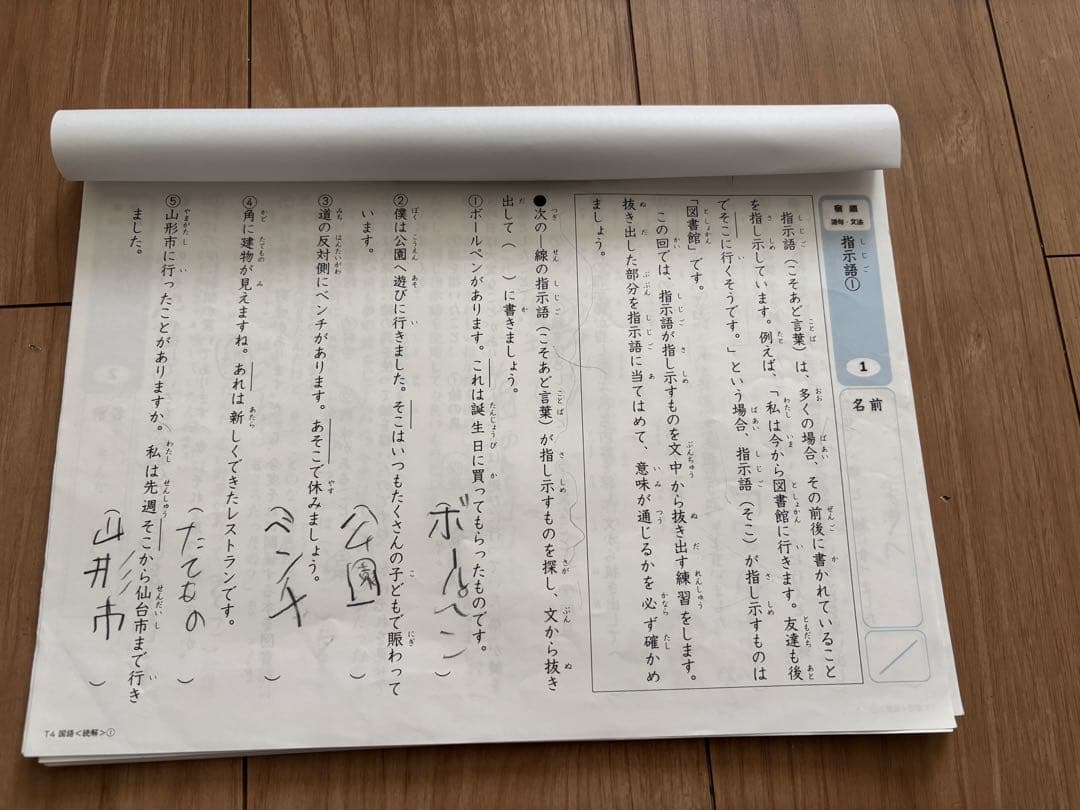 宿題
語句・文法
指示語①
しじご
1
名前
指示語(こそあど言葉)は、多くの場合、その前後に書かれていること
を指し示しています。例えば、「私は今から図書館に行きます。友達も後
でそこに行くそうです。」という場合、指示語(そこ)が指し示すものは
「図書館」です。
この回では、指示語が指し示すものを文中から抜き出す練習をします。
抜き出した部分を指示語に当てはめて、意味が通じるかを必ず確かめ
ましょう。
●次の―線の指示語(こそあど言葉)が指し示すものを探し、文から抜き
出して( )に書きましょう。
①ボールペンがあります。これは誕生日に買ってもらったものです。
(ボールペン)
②僕は公園へ遊びに行きました。そこはいつもたくさんの子どもで賑わって
います。
(公園)
③道の反対側にベンチがあります。あそこで休みましょう。
(ベンチ)
④角に建物が見えますね。あれは新しくできたレストランです。
(たてもの)
⑤山形市に行ったことがありますか。私は先週そこから仙台市まで行き
ました。
(山井彡市)
T4 国語<読解>①